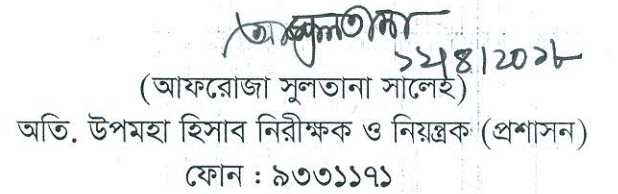 আ সুলতানা
১২/৪/২০১৮
(আফরোজা সুলতানা সালেহ)
অতি. উপমহা হিসাব নিরীক্ষক ও নিয়ন্ত্রক (প্রশাসন)
ফোন : ৯৩৩১১৭১